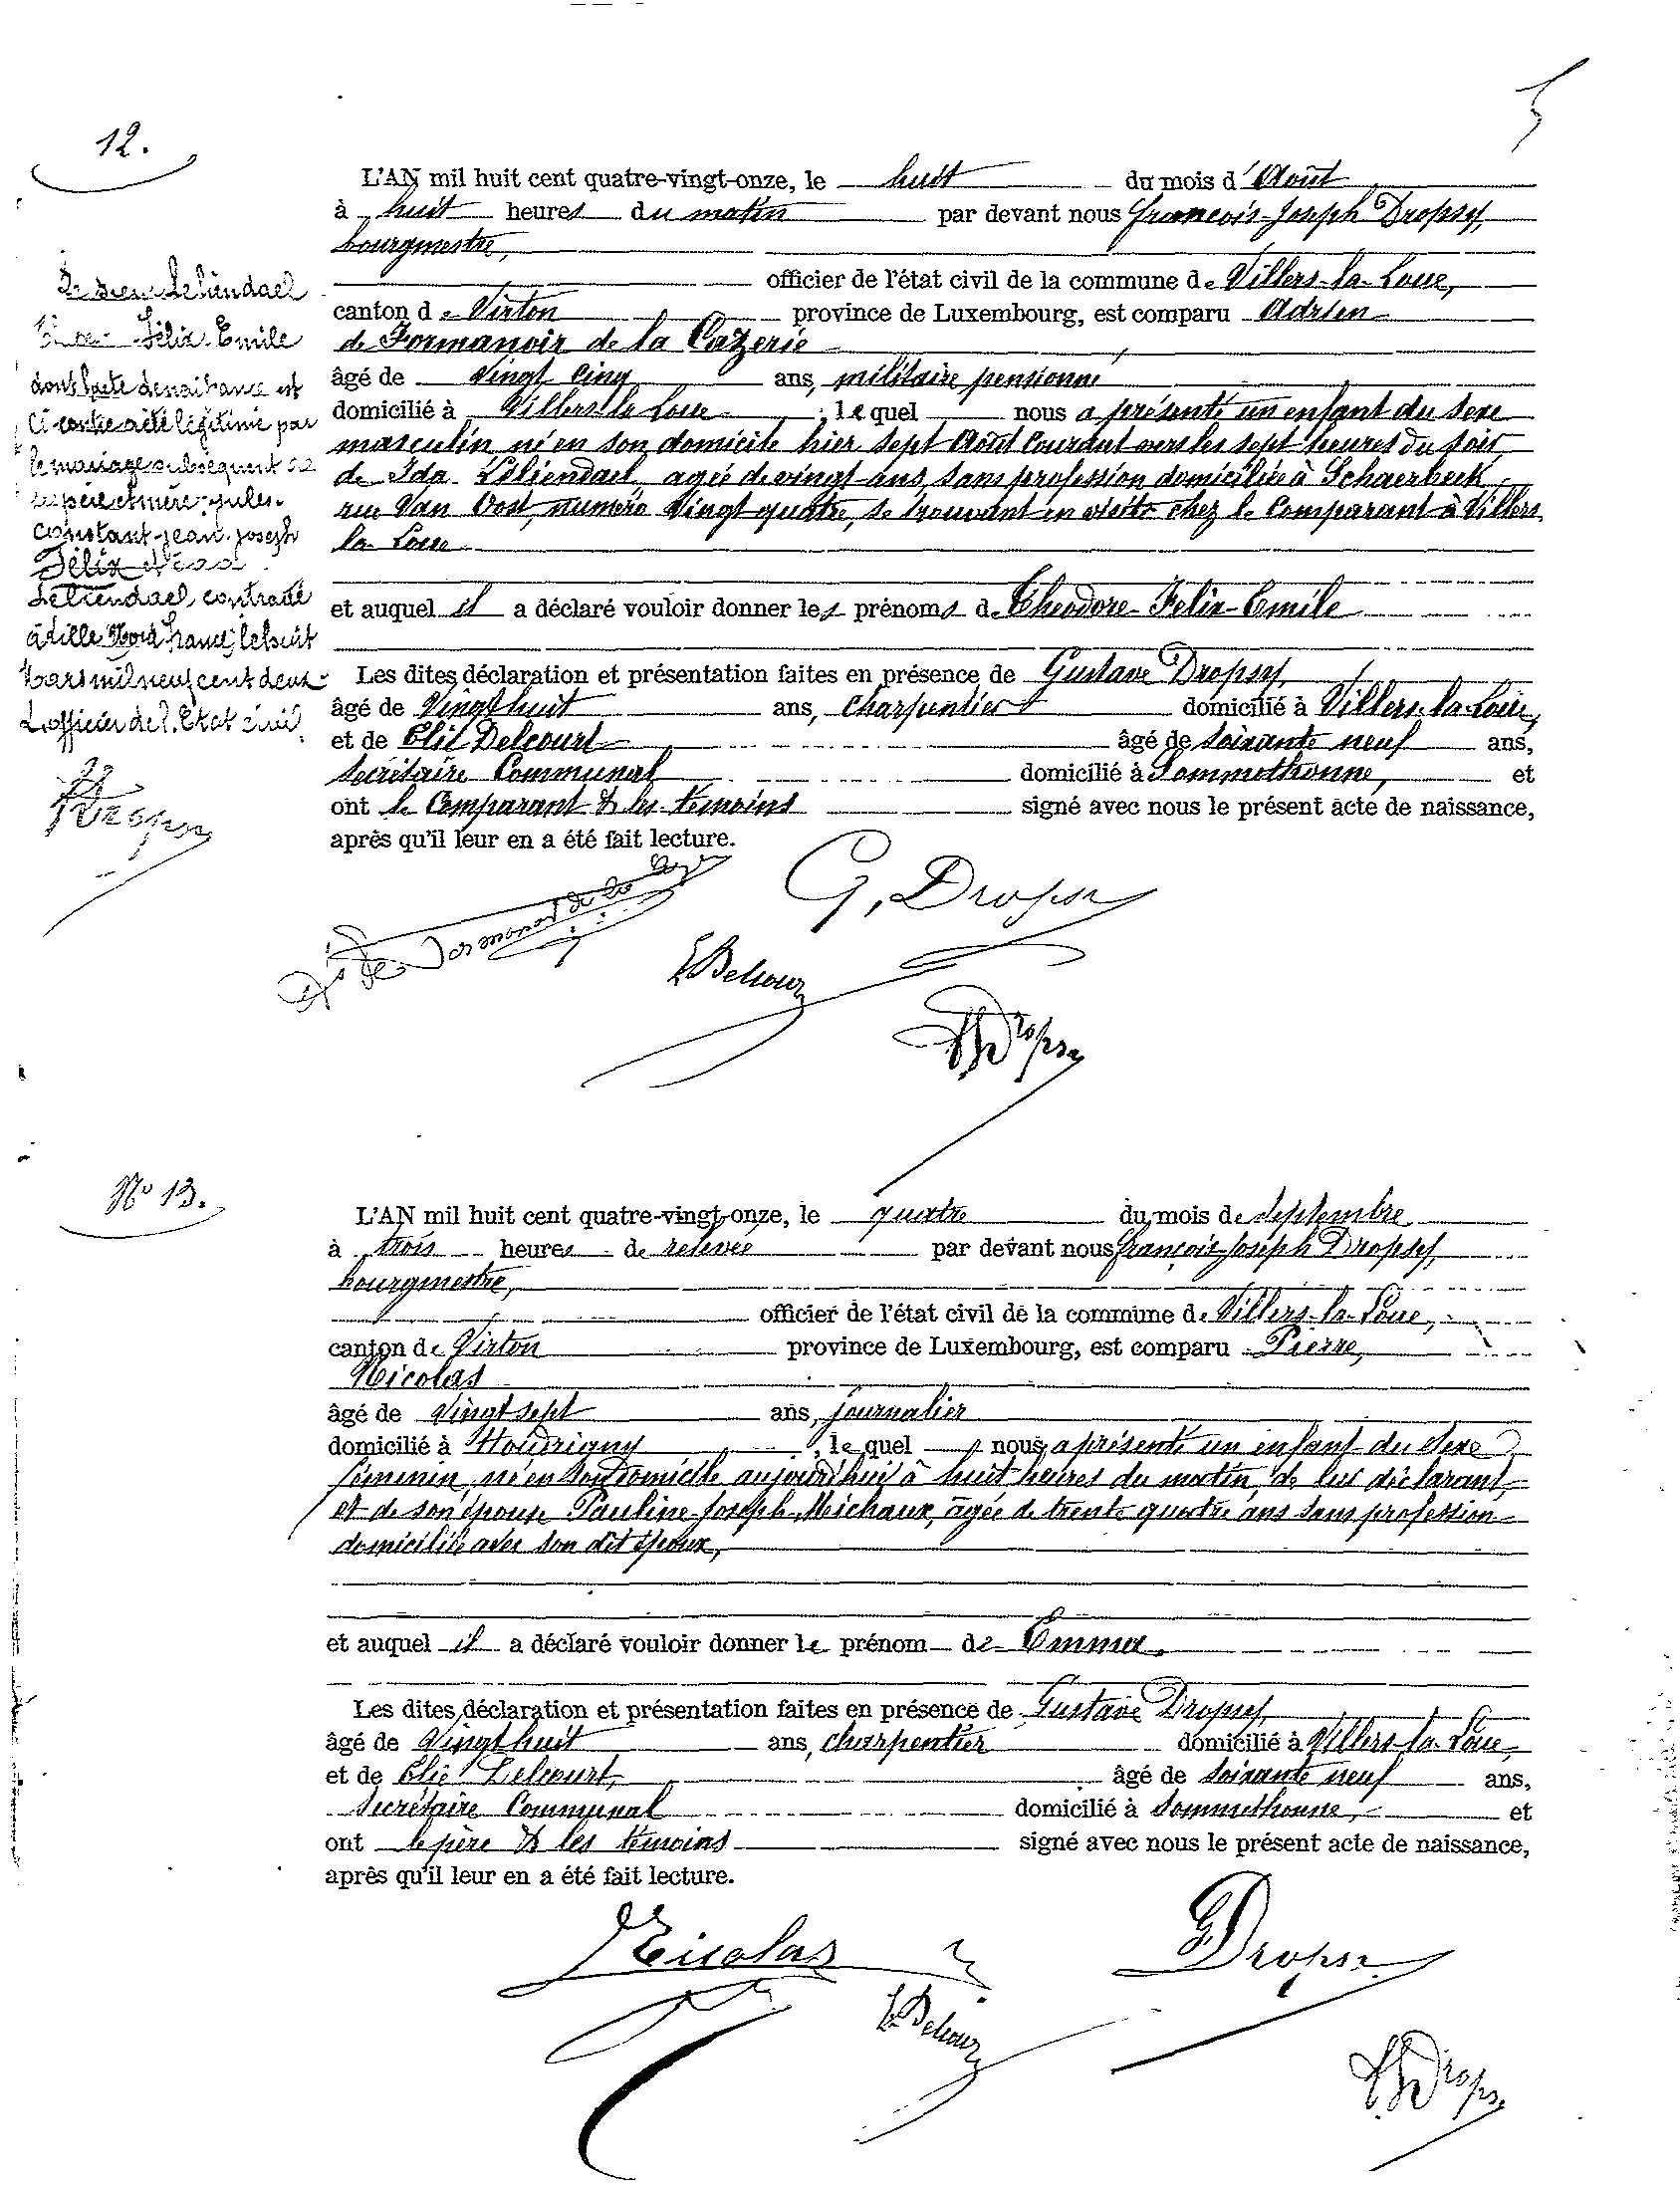 12.
L'AN mil huit cent quatre-vingt-onze, le huit du mois d'Août
à huit heures du matin par devant nous François-Joseph Dropsy,
bourgmestre,
officier de l'état civil de la commune de Villers-la-Loue,
canton de Virton province de Luxembourg, est comparu Adrien
de Formanoir de la Cazerie
âgé de Vingt cinq ans, militaire pensionné
domicilié à Villers-la-Loue, lequel nous a présenté un enfant du sexe
masculin né en son domicile hier sept Août courant vers les sept heures du soir,
de Ida Liliendael, agée de vingt ans, sans profession domiciliée à Schaerbeek,
rue Van Oost, numéro Vingt quatre, se trouvant en visite chez le Comparant à Villers
la-Loue
et auquel il a déclaré vouloir donner les prénoms de Théodore-Felix-Emile
Les dites déclaration et présentation faites en présence de Gustave Dropsy,
âgé de Vingt huit ans, charpentier domicilié à Villers-la-Loue,
et de Elie Delcourt âgé de soixante neuf ans,
secrétaire Communal domicilié à Sommethonne, et
ont le Comparant & les témoins signé avec nous le présent acte de naissance,
après qu'il leur en a été fait lecture.
Le Liliendael
Félix-Emile
dont l'acte de naissance est
ci contre a été légitimé par
le mariage subséquent de
père et mère: jules-
constant-jean-joseph
Félix et
Liliendael, contracté
à Lille (Nord France) le huit
Mars mil neuf cent deux.
L'officier de l'Etat civil,
Dropsy
de Formanoir de la
G. Dropsy
E Delcour
Dropsy
No 13.
L'AN mil huit cent quatre-vingt-onze, le quatre du mois de septembre
à trois heures de relevée par devant nous François-Joseph Dropsy,
bourgmestre,
officier de l'état civil de la commune de Villers-la-Loue,
canton de Virton province de Luxembourg, est comparu Pierre,
Nicolas
âgé de Vingt sept ans, journalier
domicilié à Houdrigny, lequel nous a présenté un enfant du sexe
féminin, né en son domicile aujourd'hui à huit heures du matin, de lui déclarant,
et de son épouse Pauline-Joseph-Michaux, agée de trente quatre ans sans profession
domiciliée avec son dit époux,
et auquel il a déclaré vouloir donner le prénom de Emma.
Les dites déclaration et présentation faites en présence de Gustave Dropsy,
âgé de Vingt huit ans, charpentier domicilié à Villers-la-Loue,
et de Elie Delcourt, âgé de soixante neuf ans,
secrétaire Communal domicilié à Sommethonne, et
ont le père & les témoins signé avec nous le présent acte de naissance,
après qu'il leur en a été fait lecture.
Nicolas
G Dropsy
E Delcour
Dropsy